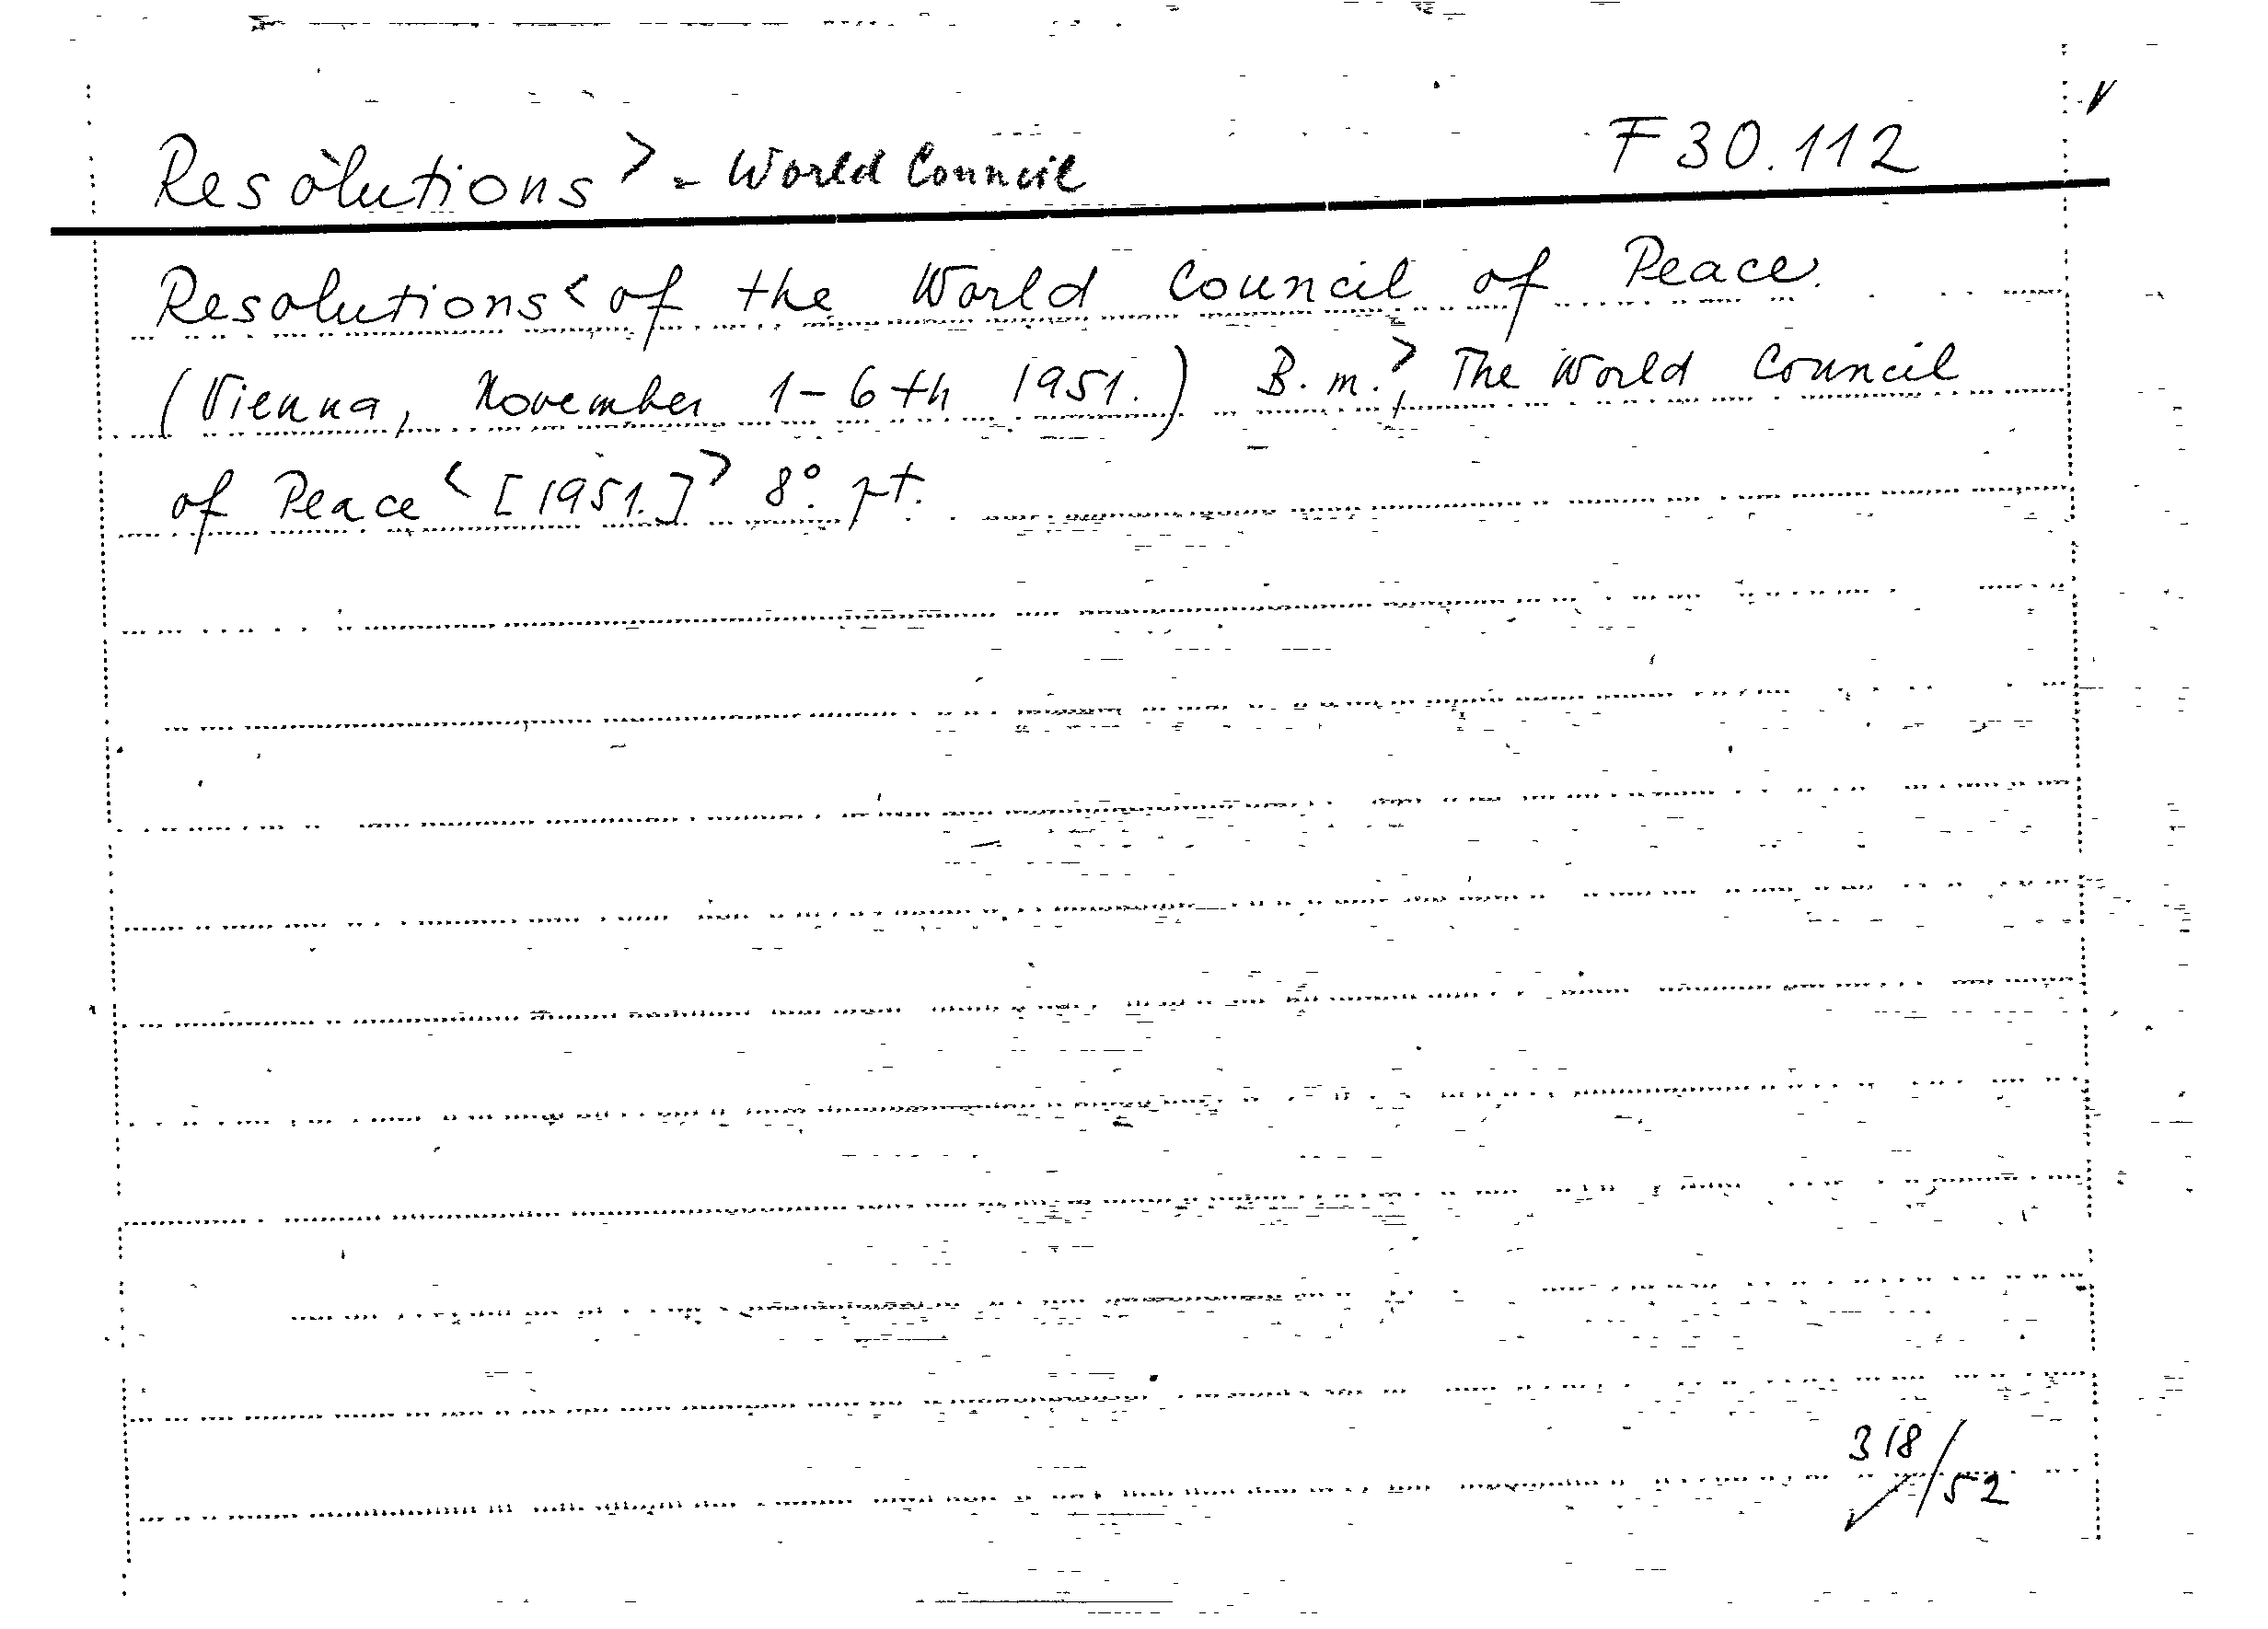 Resolutions> - World Council F 30.112
Resolutions< of the World Council of Peace.
(Vienna, November 1-6th 1951.) B. m.>, The World Council
of Peace< [1951.]> 8° pt.
318/52